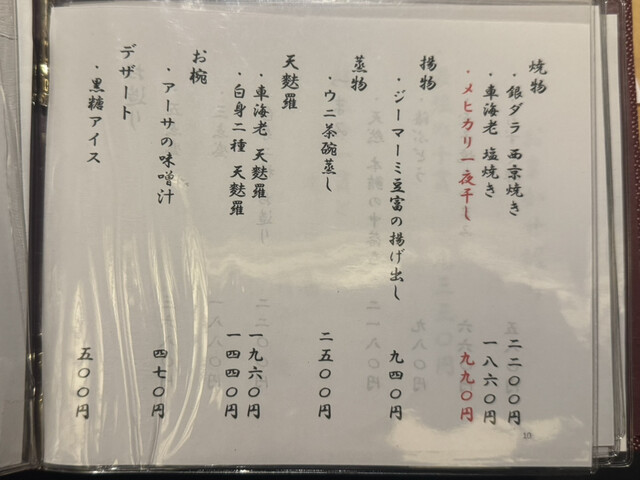 焼物
・銀ダラ 西京焼き 二二〇〇円
・車海老 塩焼き 一八六〇円
・メヒカリ一夜干し 九九〇円
揚物
・ジーマーミ豆富の揚げ出し 九四〇円
蒸物
・ウニ茶碗蒸し 二五〇〇円
天麩羅
・車海老 天麩羅 一九六〇円
・白身二種 天麩羅 一四四〇円
お椀
・アーサの味噌汁 四七〇円
デザート
・黒糖アイス 五〇〇円
10